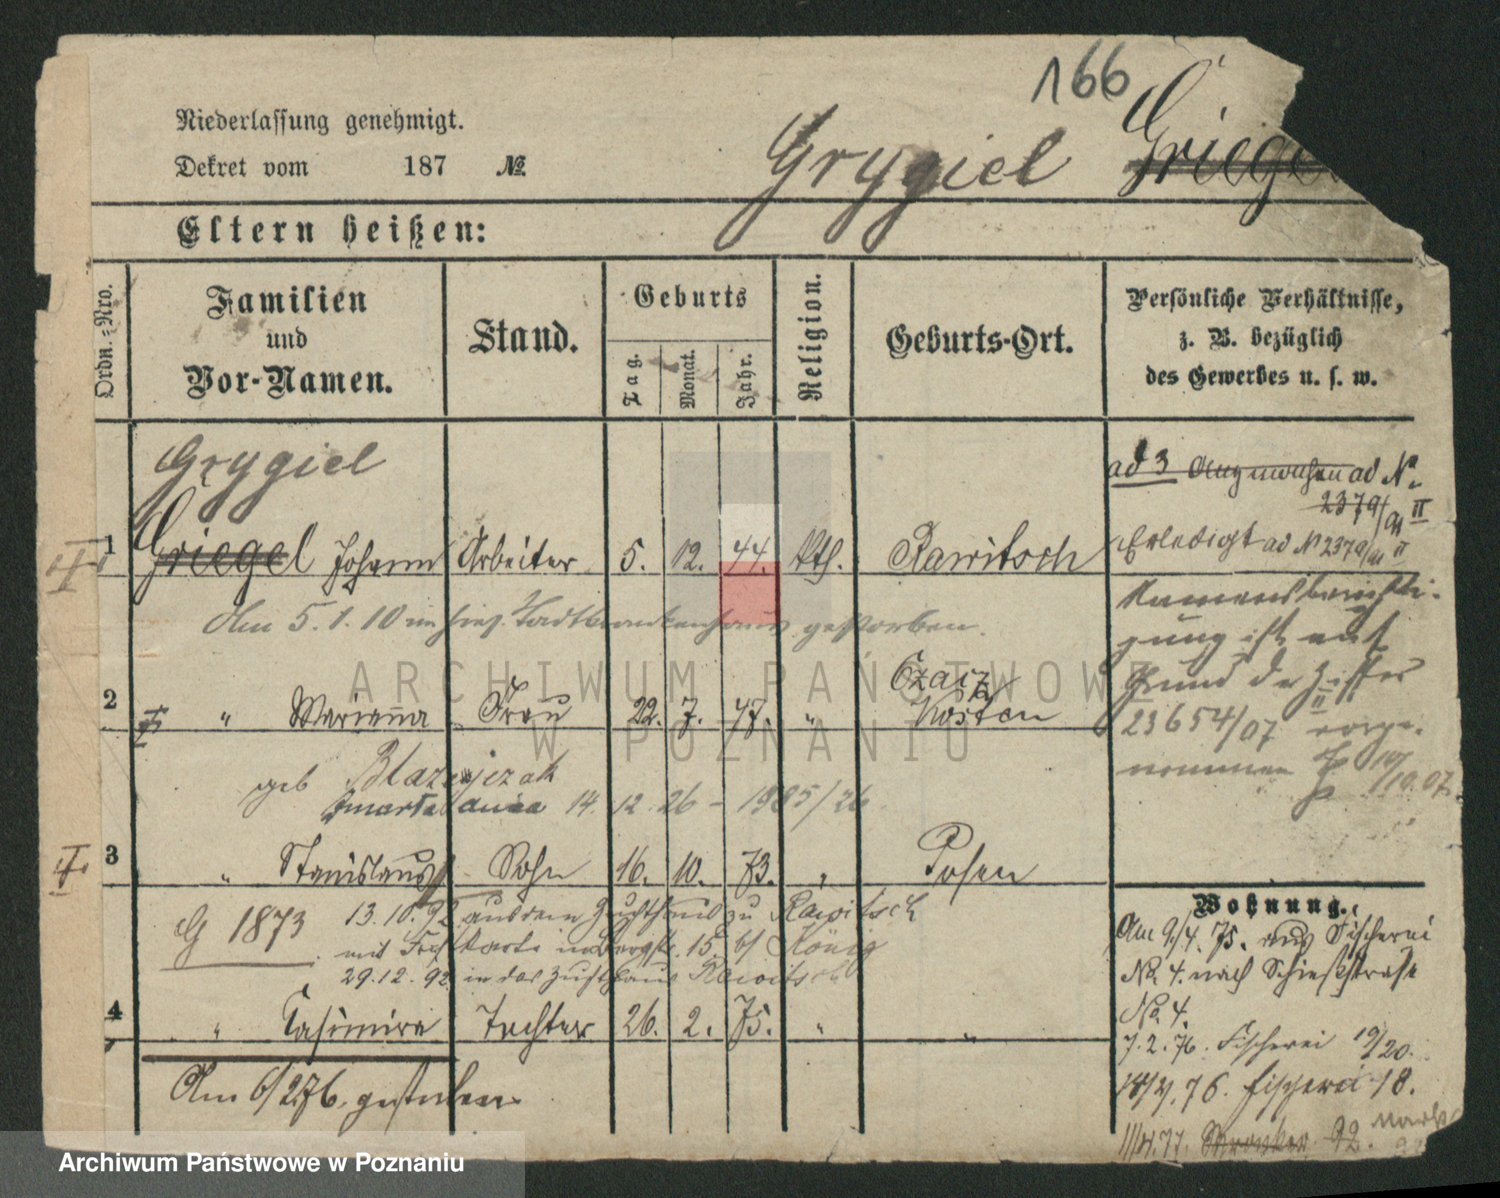 166
Niederlassung genehmigt.
Dekret vom 187 №
Grygiel Griegel
Eltern heißen:
Ordn.-Nro.
Familien und Vor-Namen.
Stand.
Geburts
Tag. Monat. Jahr.
Religion.
Geburts-Ort.
Persönliche Verhältnisse, z. B. bezüglich des Gewerbes u. s. w.
Grygiel
1 Griegel Johann Arbeiter 5. 12. 44. kth. Rawitsch
Am 5.1.10 im hies. Stadtkrankenhaus gestorben.
2 " Marianna Frau 22. 7. 47. " Czacz Kosten
geb Blazejczak
Zmarła dnia 14.12.26 - 1985/26
3 " Stanislaus Sohn 16. 10. 73. " Posen
G 1873 13.10.92 aus dem Zuchthaus zu Rawitsch
mit 15. b/ König
29.12.92 in das Zuchthaus Rawitsch
4 " Casimira Tochter 26. 2. 75. " "
Am 6/2 76. gestorben
ad 3 ad №
2379/91 II
Erledigt ad № 2379/91 II
Namensberichti-
gung ist auf
Grund der Ziffer
23654/07 II vorge-
nommen
10/10.07.
Wohnung.
Am 9/4. 75. aus Fischerei
No 4. nach Schießstraße
No. 4.
7.2.76. Fischerei 19/20.
18/4.76. Fischerei 18.
11/4.77. 92.
ARCHIWUM PAŃSTWOWE
W POZNANIU
Archiwum Państwowe w Poznaniu